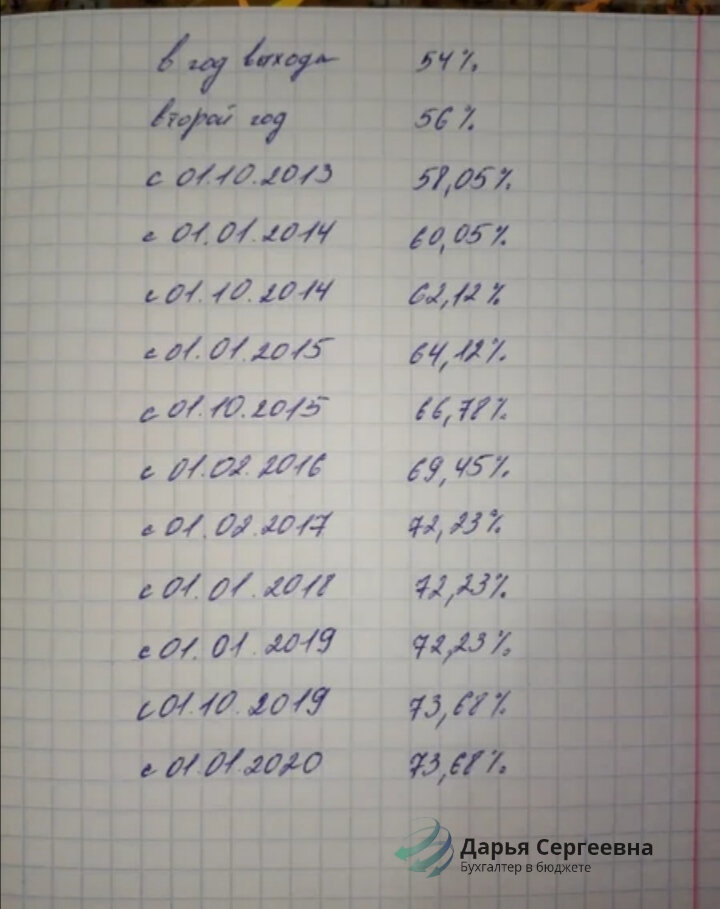 в год выхода 54%
второй год 56%
с 01.10.2013 58,05%
с 01.01.2014 60,05%
с 01.10.2014 62,12%
с 01.01.2015 64,12%
с 01.10.2015 66,78%
с 01.02.2016 69,45%
с 01.02.2017 72,23%
с 01.01.2018 72,23%
с 01.01.2019 72,23%
с 01.10.2019 73,68%
с 01.01.2020 73,68%
Дарья Сергеевна
Бухгалтер в бюджете